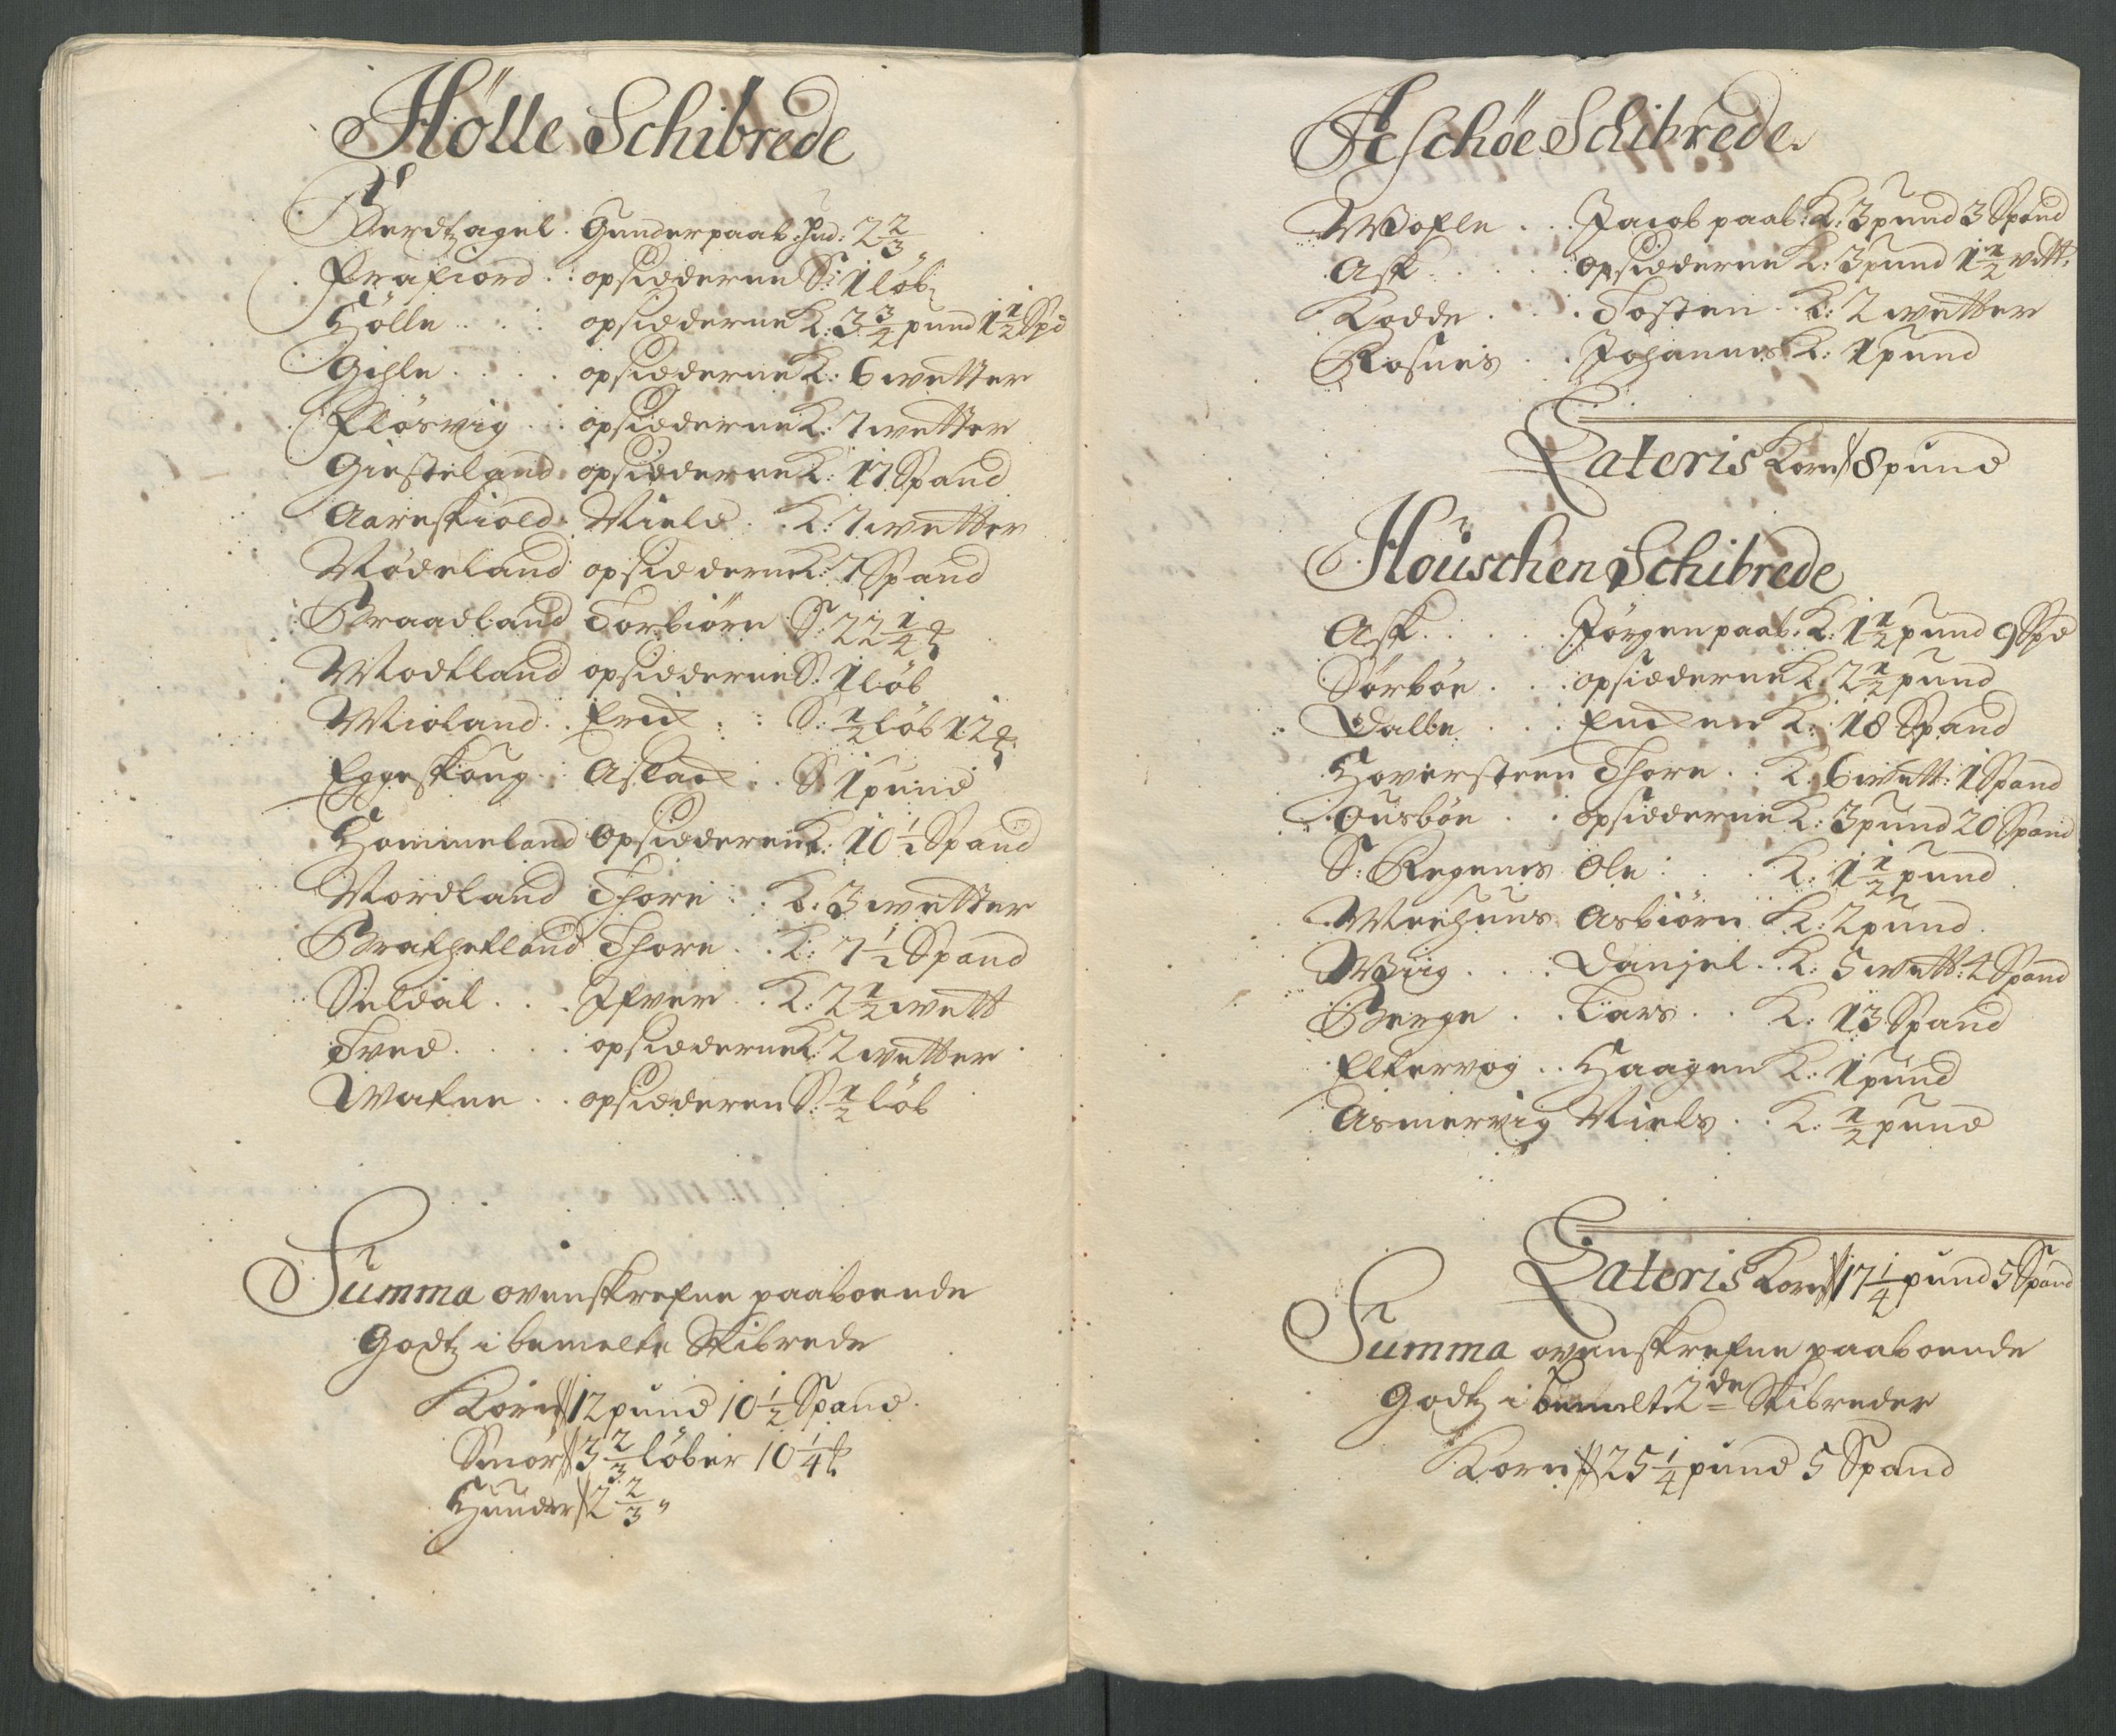 Hölle Schibrede
Berdtzagel. Gunder paab: Hud: 2 2/3 "
Frafiord. : opsidderne S: 1 löb
Hölle . . . opsidderne K: 3 3/4 pund 1 1/2 Spd
Gihle . . . . opsidderne K: 6 wetter
Flörwig . . opsidderne K: 7 wetter
Giesteland opsidderne K: 17 Spand
Aareskiold. Niels. K: 7 wetter
Nödeland opsidderne K: 7 Spand
Braadland Torbiörn S: 22 1/4 ℔
Modtland opsidderne S: 1 löb
Mioland. . Erich . : S: 1/2 löb 12 ℔
Eggeskoug. : Aslach . . S: 1 pund
Hommeland Opsidderne K: 10 1/2 Spand
Nordland Thore : . K: 3 wetter
Brechetland Thore . . K: 7 1/2 Spand
Seldal . . . Ifver . . K: 2 1/2 wett
Tved. . . . . opsidderne K: 2 wetter
Watne . . opsidderne S: 1/2 löb
Summa ovenskrefne paaboende
Godtz i bemelte Skibrede
Korn 12 pund 10 1/2 Spand.
Smör 3 2/3 löber 10 1/4 ℔
Hunder 2 2/3 "
Aschöe Schibrede.
Wofle . . . Jacob paab: K: 3 pund 3 Spand
Ask . . . . : opsidderne K: 3 pund 1 1/2 vett:
Rodde . . . . Tosten . K: 2 wetter
Rosnes . . Johannes K: 1 pund
Lateris Korn 8 pund
Houschen Schibrede
Ask . . . . . Jörgen paab: K: 1 1/2 pund 9 Spd
Sörböe . . . opsidderne K: 2 1/2 pund
Dalbe . . . . K: 18 Spand
Hoversteen Thore . : K: 6 wett: 1 Spand
Ousböe . . . opsidderne K: 3 pund 20 Spand
S: Regenes Ole : . . K: 1 1/2 pund
Meehuus Asbiörn K: 2 pund
Wiig . . . : Danjel . K: 5 wett: 4 Spand
Berge . . . Lars . . K: 13 Spand
Eltervog . . Haagen K: 1 pund
Asmervig Niels . . K: 1/2 pund
Lateris Korn 17 1/4 pund 5 Spand
Summa ovenskrefne paaboende
Godtz i bemelte 2de Skibreder
Korn 25 1/4 pund 5 Spand